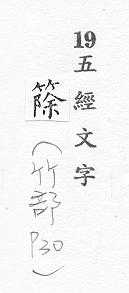 19五經文字
篨
(竹部P30)